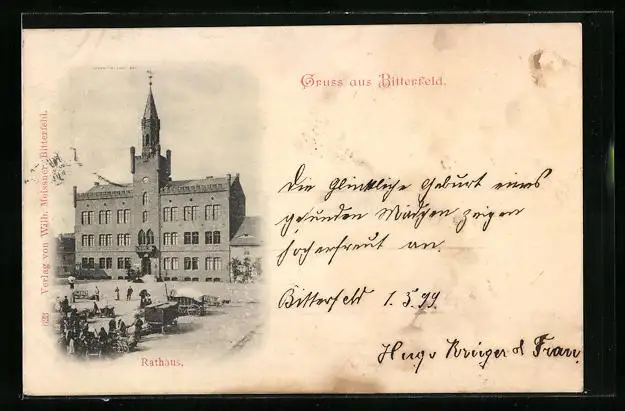 Gruss aus Bitterfeld.
Die glückliche Geburt eines
gesunden Mädchen zeigen
hocherfreut an.
Bitterfeld 1.5.99
Hugo Krüger & Frau
Rathaus.
623 Verlag von Wilh. Meissner, Bitterfeld.